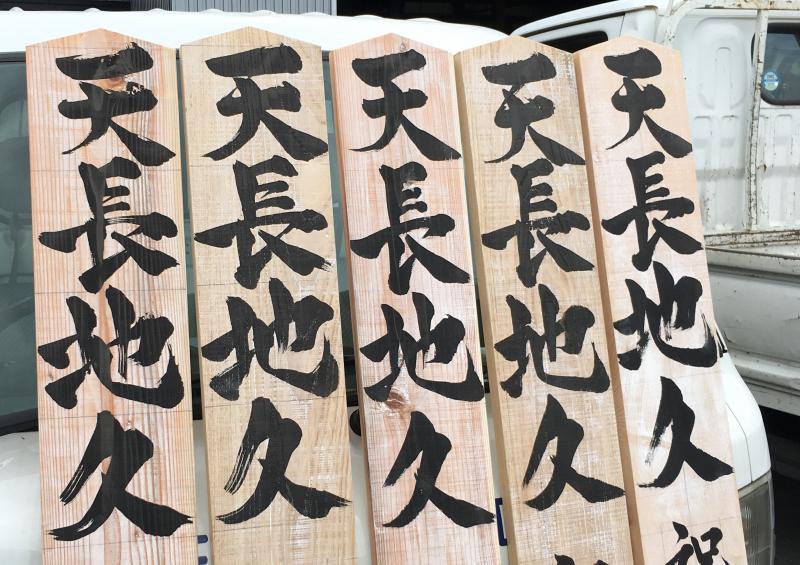 天長地久
天長地久
天長地久
天長地久
天長地久
祝